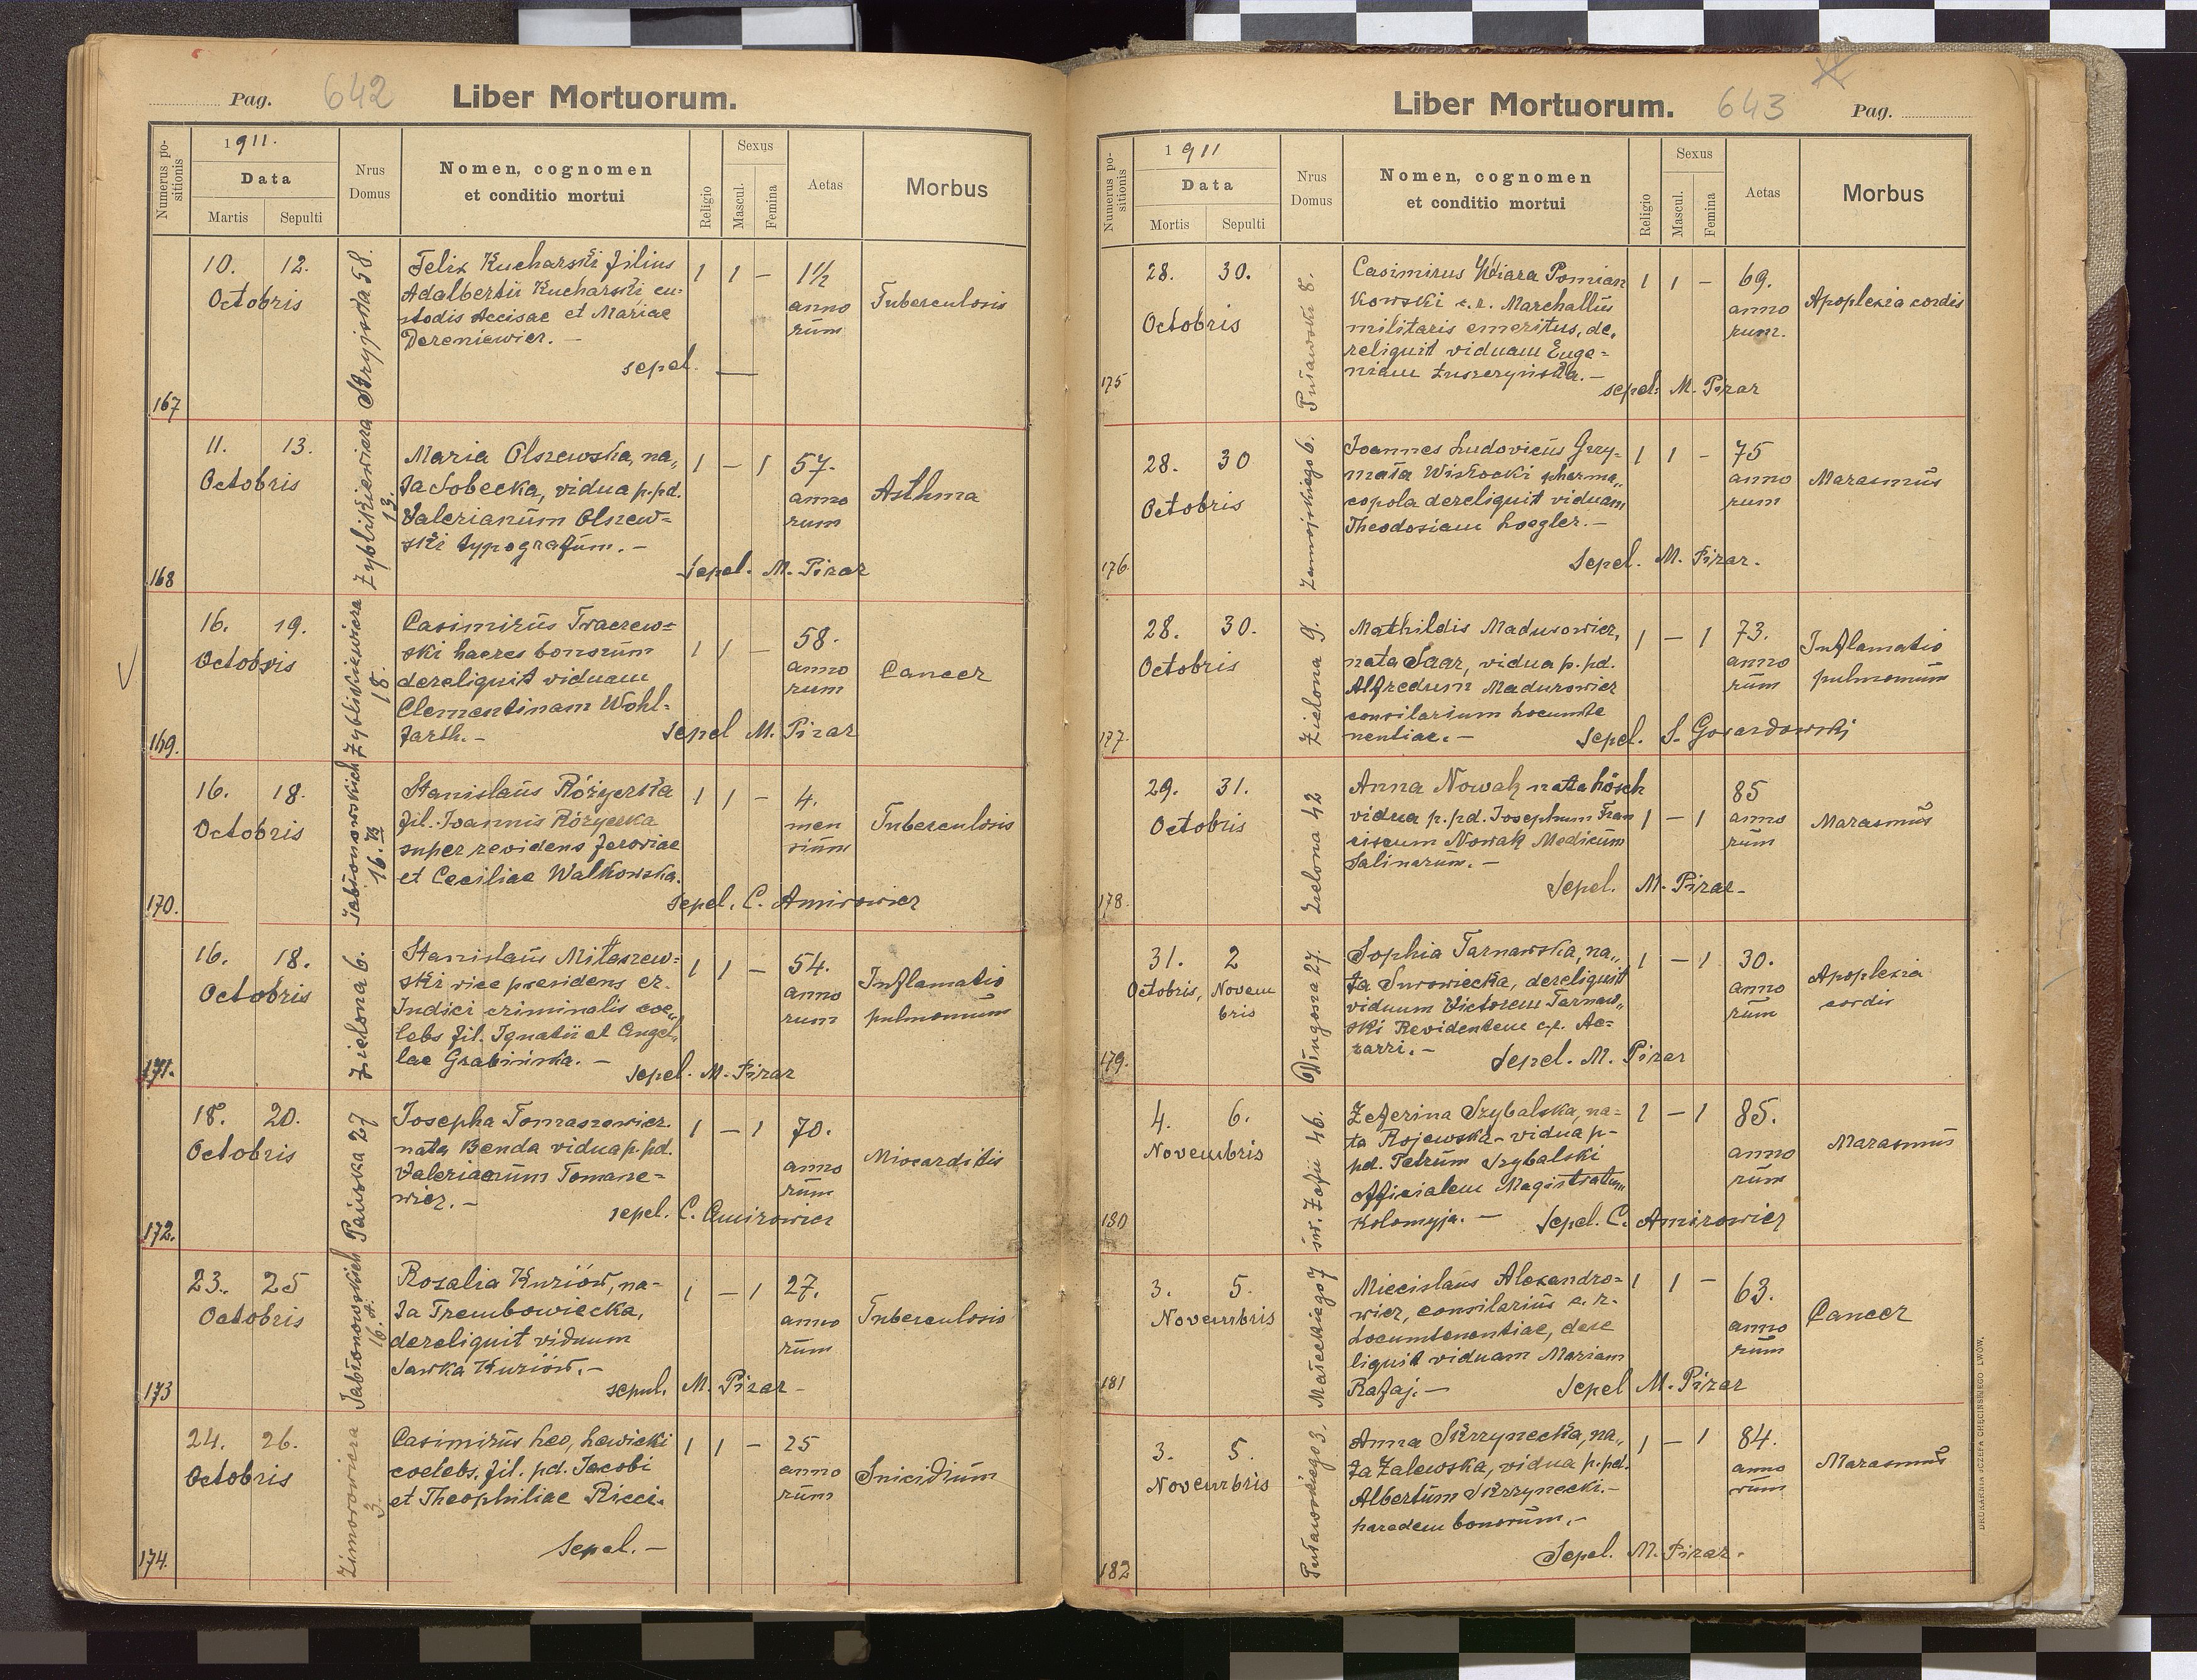 Pag. 642 Liber Mortuorum.
Numerus positionis
1911.
Data
Martis Sepulti
Nrus Domus
Nomen, cognomen
et conditio mortui
Religio
Sexus
Mascul. Femina
Aetas
Morbus
167
10. 12.
Octobris
Stryjska 58.
Felix Kucharski filius
Adalberti Kucharski cu-
stodis Accisae et Mariae
Dereniewicz. –
sepel. —
1 1 –
1½
anno
rum
Tuberculosis
168
11. 13.
Octobris
Zyblikiewicza
13.
Maria Olszewska, na„
ta Sobecka, vidua p. pd.
Valerianum Olszew=
ski typografum. –
Sepel. M. Pizar
1 – 1
57.
anno
rum
Asthma
169.
16. 19.
Octobris
Zyblikiewicza
18.
Casimirus Traczew=
ski haeres bonorum
dereliquit viduam
Clementinam Wohl=
farth. –
sepel M. Pizar
1 1 –
58.
anno
rum
Cancer
170.
16. 18.
Octobris
Jabłonowskich
16. B
Stanislaus Różycska
fil. Joannis Różycska
super revidens feroviae
et Ceciliae Walkowska.
sepel. C. Amirowicz
1 1 –
4.
men
sium
Tuberculosis
171.
16. 18.
Octobris
Zielona 6.
Stanislaus Miłaszew=
ski vice praesidens cr.
Judici criminalis coe„
lebs fil. Ignatii et Angel„
lae Grabińska. –
sepel. M. Pizar
1 1 –
54.
anno
rum
Inflamatio
pulmonum
172.
18. 20.
Octobris
Pańska 27
Josepha Tomaszewicz.
nata Benda vidua p. pd.
Valerianum Tomasze=
wicz. –
sepel. C. Amirowicz
1 – 1
70.
anno
rum
Miocarditis
173
23. 25
Octobris
Jabłonowskich
16. A.
Rosalia Kuziów, na-
ta Trembowiecka,
dereliquit viduum
Sawka Kuziów. –
sepul. M. Pizar –
1 – 1
27.
anno
rum
Tuberculosis
174.
24. 26.
Octobris
Zimorowicza
3.
Casimirus Leo, Lewicki
coelebs. fil. pd. Jacobi
et Theophiliae Ricci.
Sepel. –
1 1 –
25
anno
rum
Suicidium
Liber Mortuorum. 643 Pag.
Numerus positionis
1911
Data
Mortis Sepulti
Nrus Domus
Nomen, cognomen
et conditio mortui
Religio
Sexus
Mascul. Femina
Aetas
Morbus
175
28. 30.
Octobris
8.
Casimirus Pomian
kowski c. r. Marchallus
militaris emeritus, de,
reliquit viduam Euge=
niam Łuszczyńska. –
sepel: M. Pizar
1 1 –
69.
anno
rum.
Apoplexia cordis
176
28. 30
Octobris
Zamojskiego 6.
Joannes Ludovicus Grzy=
mała Wisłocki pharma„
copola dereliquit viduam
Theodosiam Loegler. –
Sepel. M. Pizar.
1 1 –
75
anno
rum
Marasmus
177.
28. 30.
Octobris
Zielona 9.
Mathildis Madurowicz,
nata Saar, vidua p. pd.
Alfredum Madurowicz
consilarium Locumte
nentiae. –
Sepel. S. Gorardowski
1 – 1
73.
anno
rum
Inflamatio
pulmonum
178.
29. 31.
Octobris
Zielona 42
Anna Nowak nata Lösch
vidua p. pd. Josephum Fran
ciscum Nowak Medicum
Salinarum. –
Sepel. M. Pizar –
1 – 1
85
anno
rum
Marasmus
179.
31. 2
Octobris, Novem
bris
27.
Sophia Tarnawska, na„
ta Surowiecka, dereliquit
viduum Victorem Tarnaw„
ski Revidentem c. r. Ae=
rarri. –
Sepel. M. Pizar
1 – 1
30.
anno
rum
Apoplexia
cordis
180
4. 6.
Novembris
św. Zofii 46.
Zeferina Szybalska, na=
ta Rojewska – vidua p –
pd. Petrum Szybalski
officialem Magistratum
Kolomyja. –
Sepel. C. Amirowicz
1 – 1
85.
anno
rum
Marasmus
181
3. 5.
Novembris
Małeckiego 7
Miecislaus Alexandro=
wicz, consilarius c. r.
Locumtenentiae, dere
liquit viduam Mariam
Rafaj. –
Sepel M. Pizar
1 1 –
63.
anno
rum
Cancer
182
3. 5.
Novembris
3.
Anna Skrzynecka, na„
ta Zalewska, vidua p. pd.
Albertum Skrzynecki. –
haredem bonorum. –
Sepel. M. Pizar.
1 – 1
84.
anno
rum
Marasmus
DRUKARNIA JÓZEFA CHĘCIŃSKIEGO LWÓW.